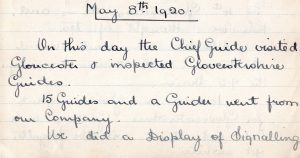 May 8th 1920.
On this day the Chief Guide visited
Gloucester & inspected Gloucestershire
Guides.
15 Guides and a Guider went from
our Company.
We did a Display of Signalling